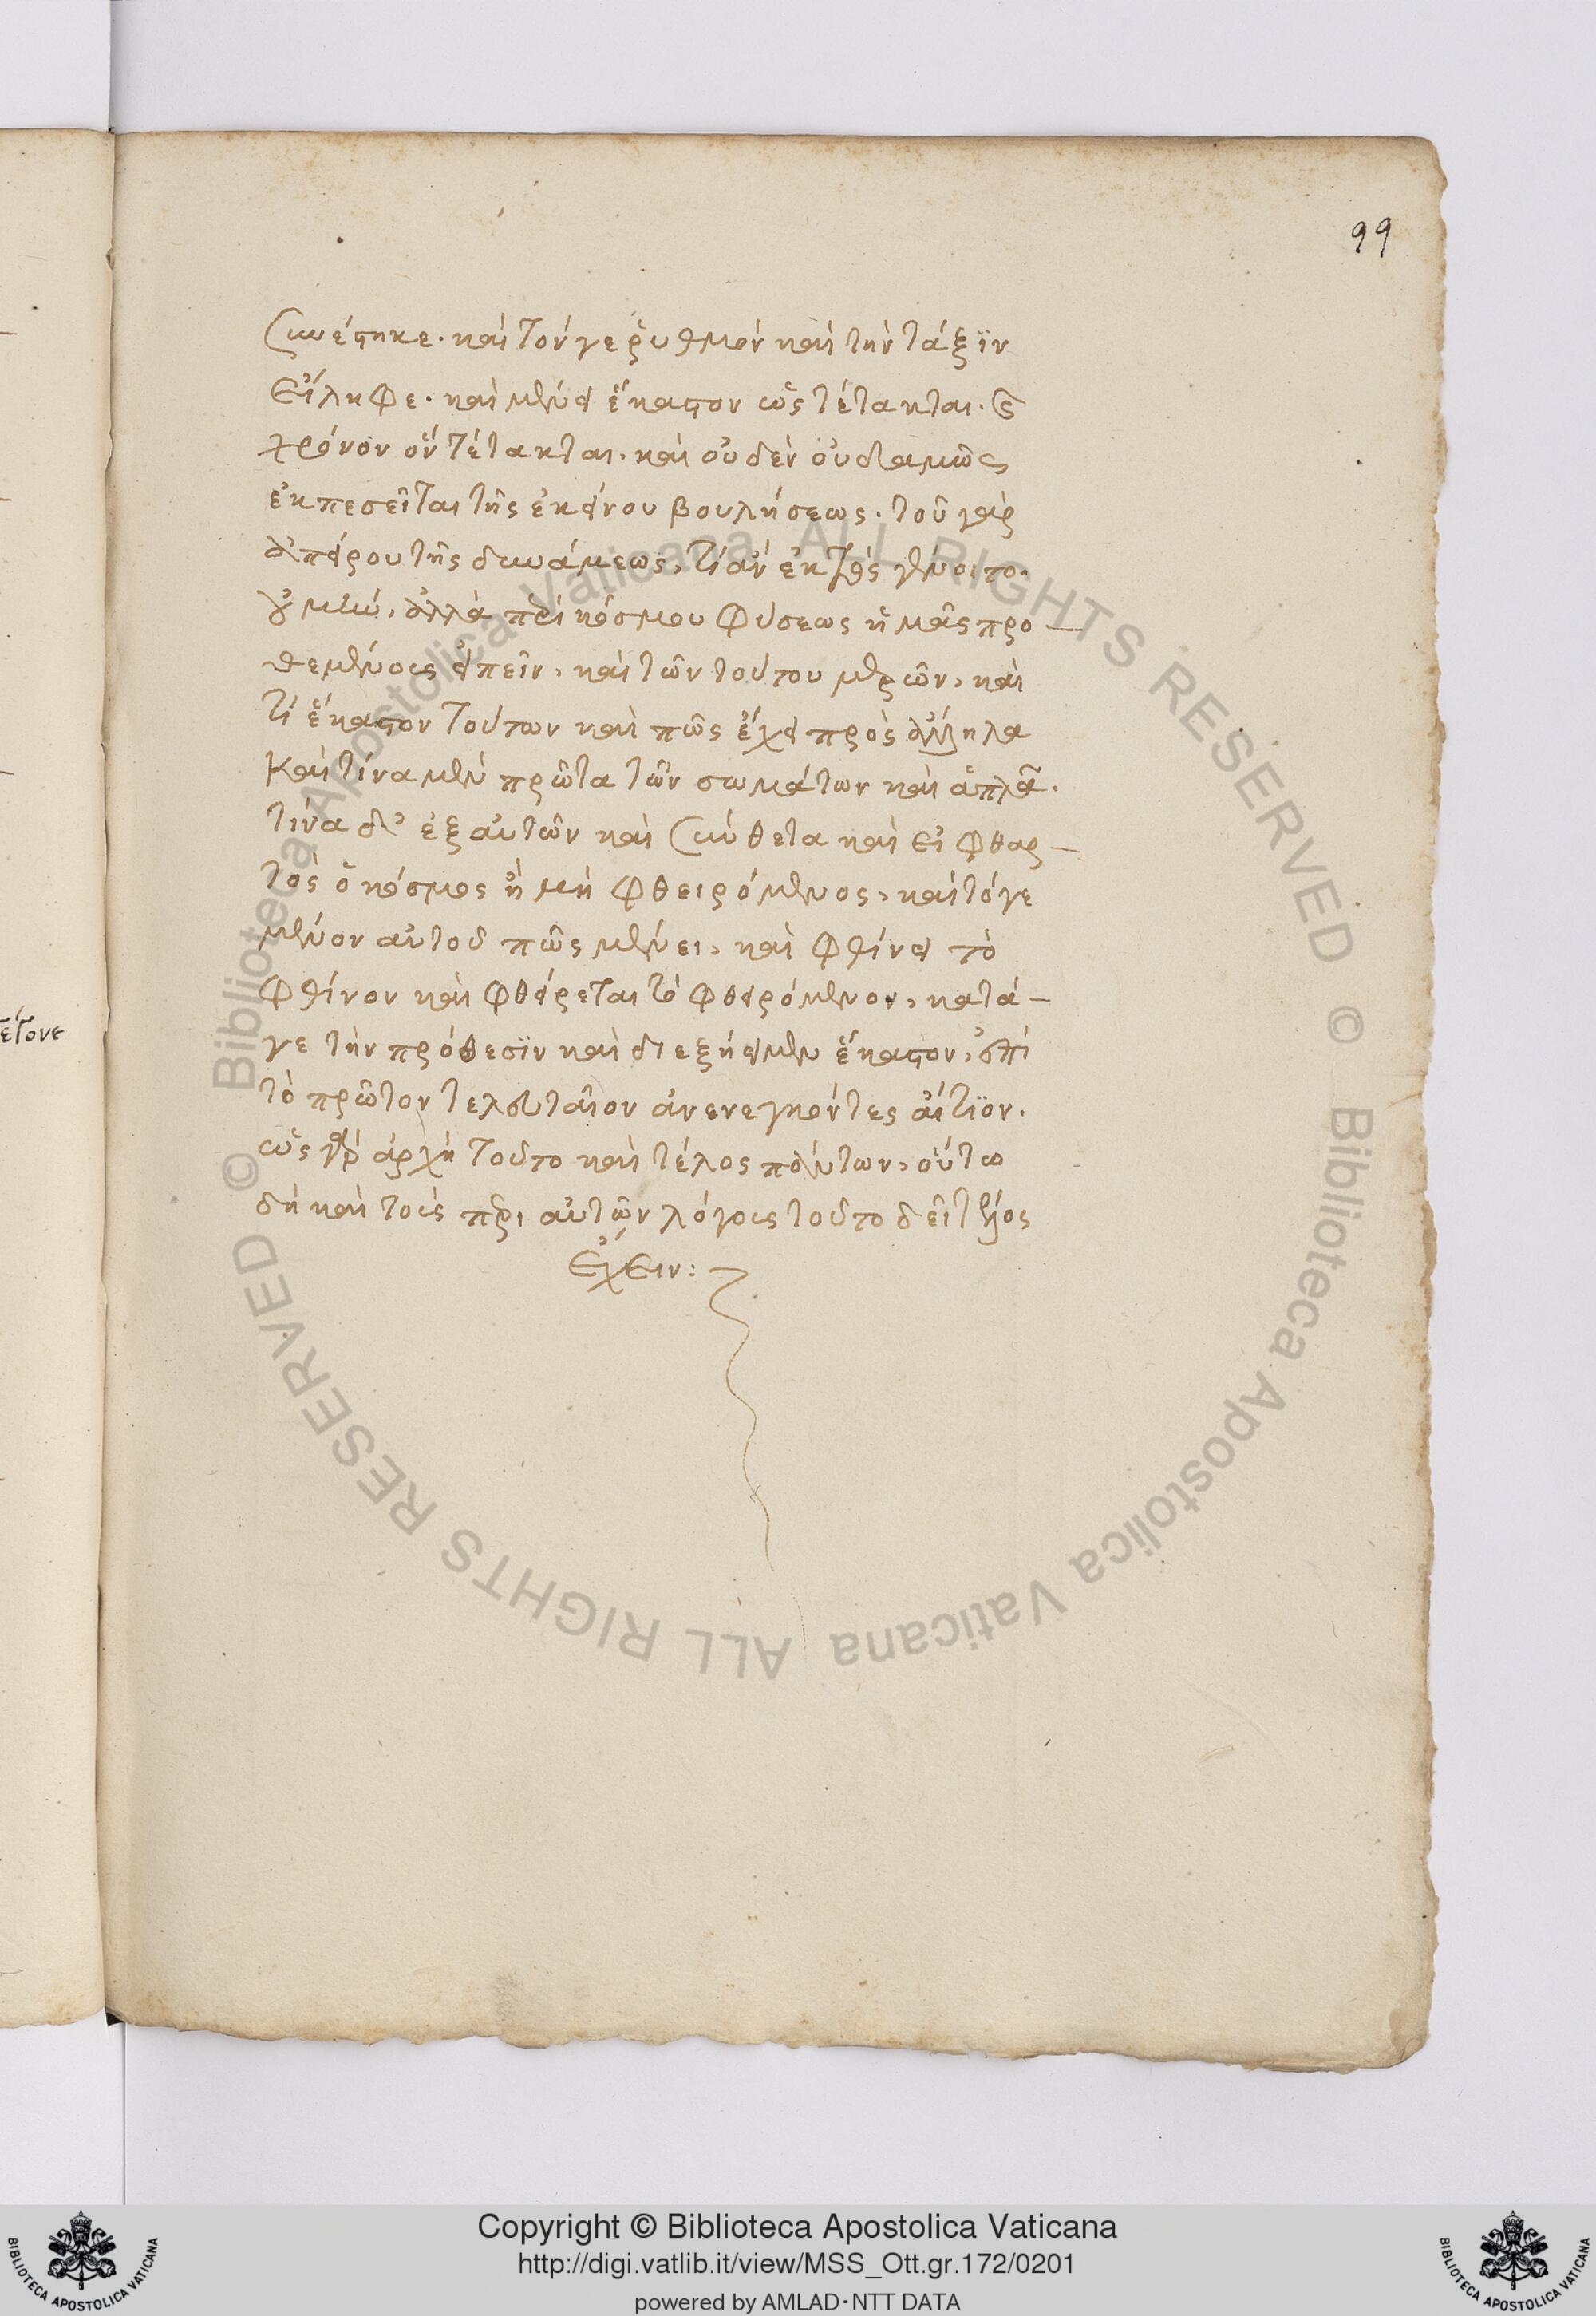 99
συνέστηκε. καὶ τόν γε ῥυθμὸν καὶ τὴν τάξϊν
εἴληφε. καὶ μένει ἕκαστον ὡς τέτακται. καὶ
χρόνον ὃν τέτακται. καὶ οὐδὲν οὐδαμῶς
ἐκπεσεῖται τῆς ἐκείνου βουλήσεως. τοῦ γὰρ
ἀπείρου τῆς δυνάμεως, τί ἂν ἐκτὸς γένοιτο.
οὐ μὴν, ἀλλὰ περὶ κόσμου φύσεως ἡμᾶς προ—
θεμένοις εἰπεῖν, καὶ τῶν τούτου μερῶν, καὶ
τί ἕκαστον τούτων καὶ πῶς ἔχει πρὸς ἄλληλα
καὶ τίνα μὲν πρῶτα τῶν σωμάτων καὶ ἁπλᾶ.
τίνα δ' ἐξ αὐτῶν καὶ σύνθετα καὶ εἰ φθαρ—
τὸς ὁ κόσμος ἢ μὴ φθειρόμενος, καὶ τό γε
μένον αὐτοῦ πῶς μένει, καὶ φθίνει τὸ
φθίνον καὶ φθείρεται τὸ φθειρόμενον, κατά—
γε τὴν πρόθεσϊν καὶ διεξήειμεν ἕκαστον, ἐπὶ
τὸ πρῶτον τελευταῖον ἀνενεγκόντες αἴτϊον.
ὡς γὰρ ἀρχὴ τοῦτο καὶ τέλος πάντων, οὕτω
δὴ καὶ τοῖς περὶ αὐτῶν λόγοις τοῦτο δεῖ τέλος
ἔχειν:
Biblioteca Apostolica Vaticana ALL RIGHTS RESERVED © Biblioteca Apostolica Vaticana ALL RIGHTS RESERVED ©
Copyright © Biblioteca Apostolica Vaticana
http://digi.vatlib.it/view/MSS_Ott.gr.172/0201
powered by AMLAD·NTT DATA
BIBLIOTECA APOSTOLICA VATICANA
BIBLIOTECA APOSTOLICA VATICANA